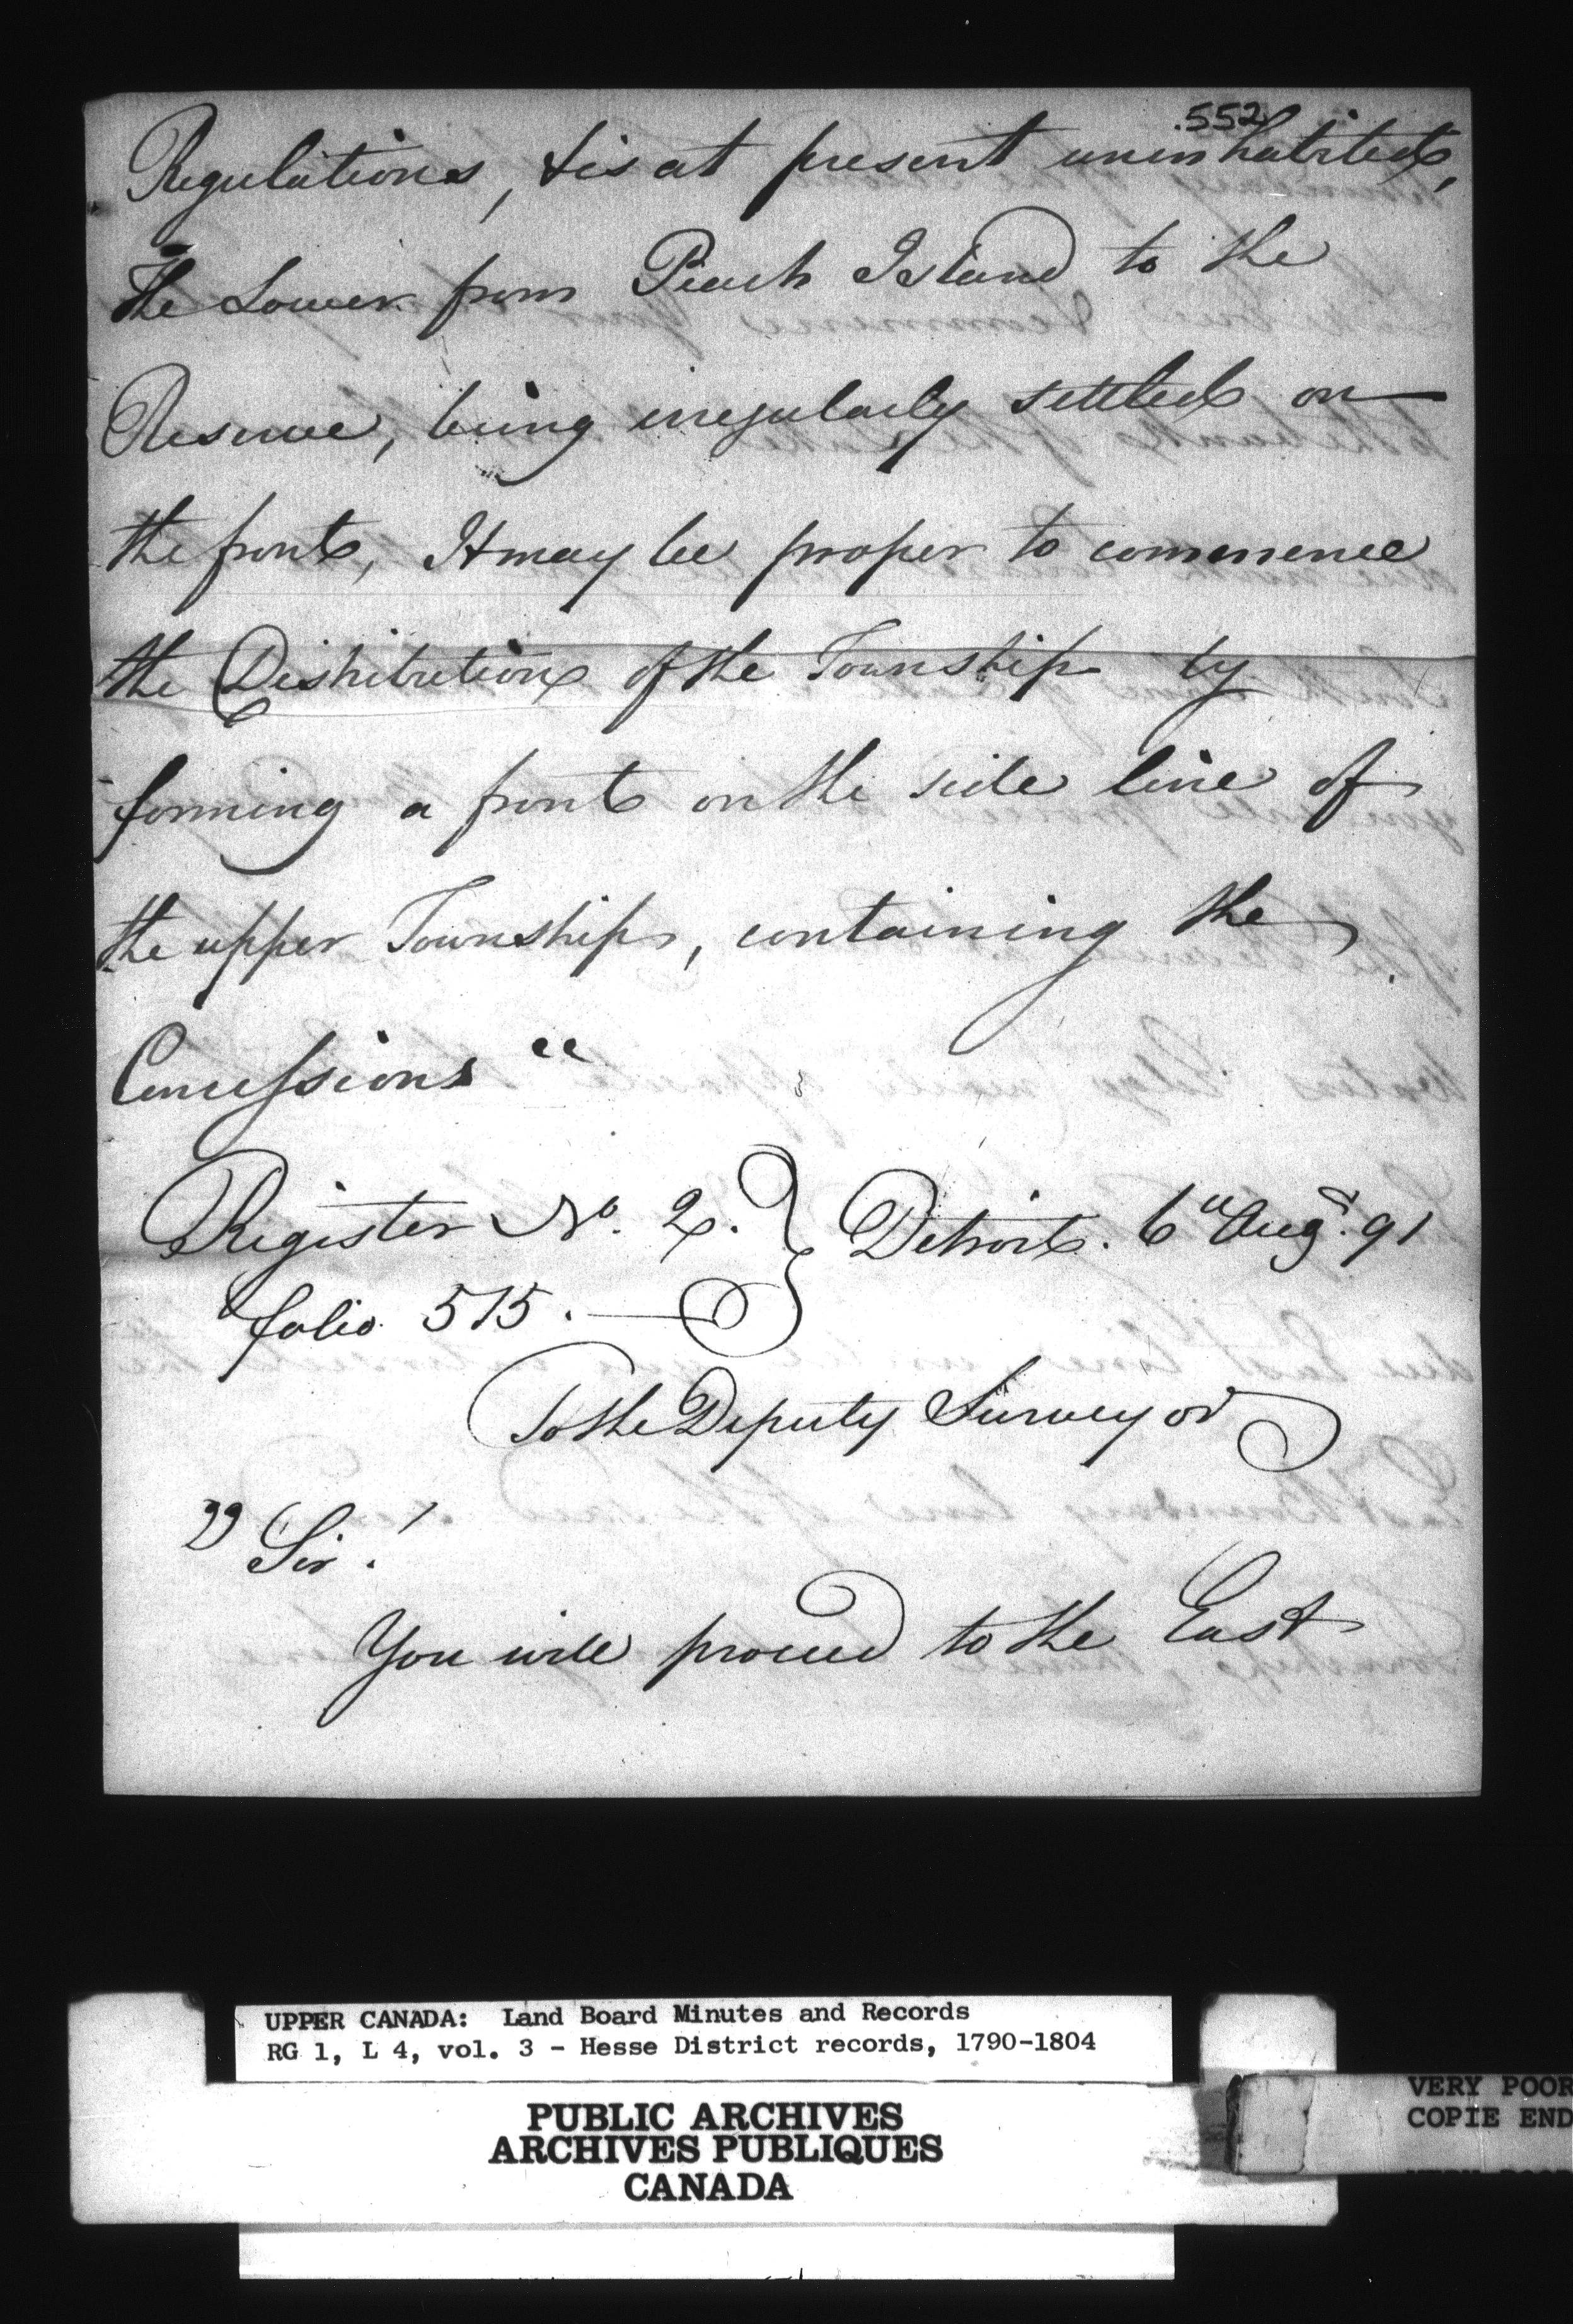 552
Regulations, & is at present uninhabited,
The Lower from Peach Island to the
Reserve, being irregularly settled on
the front, It may be proper to commence
the Distribution of the Township by
forming a front on the side line of
the upper Township, containing the
Concessions "
Register No. 2. } Detroit. 6th Augt. 91
folio 515.
To the Deputy Surveyor
" Sir!
You will proceed to the East
UPPER CANADA: Land Board Minutes and Records
RG 1, L 4, vol. 3 - Hesse District records, 1790-1804
PUBLIC ARCHIVES
ARCHIVES PUBLIQUES
CANADA
VERY POOR
COPIE END